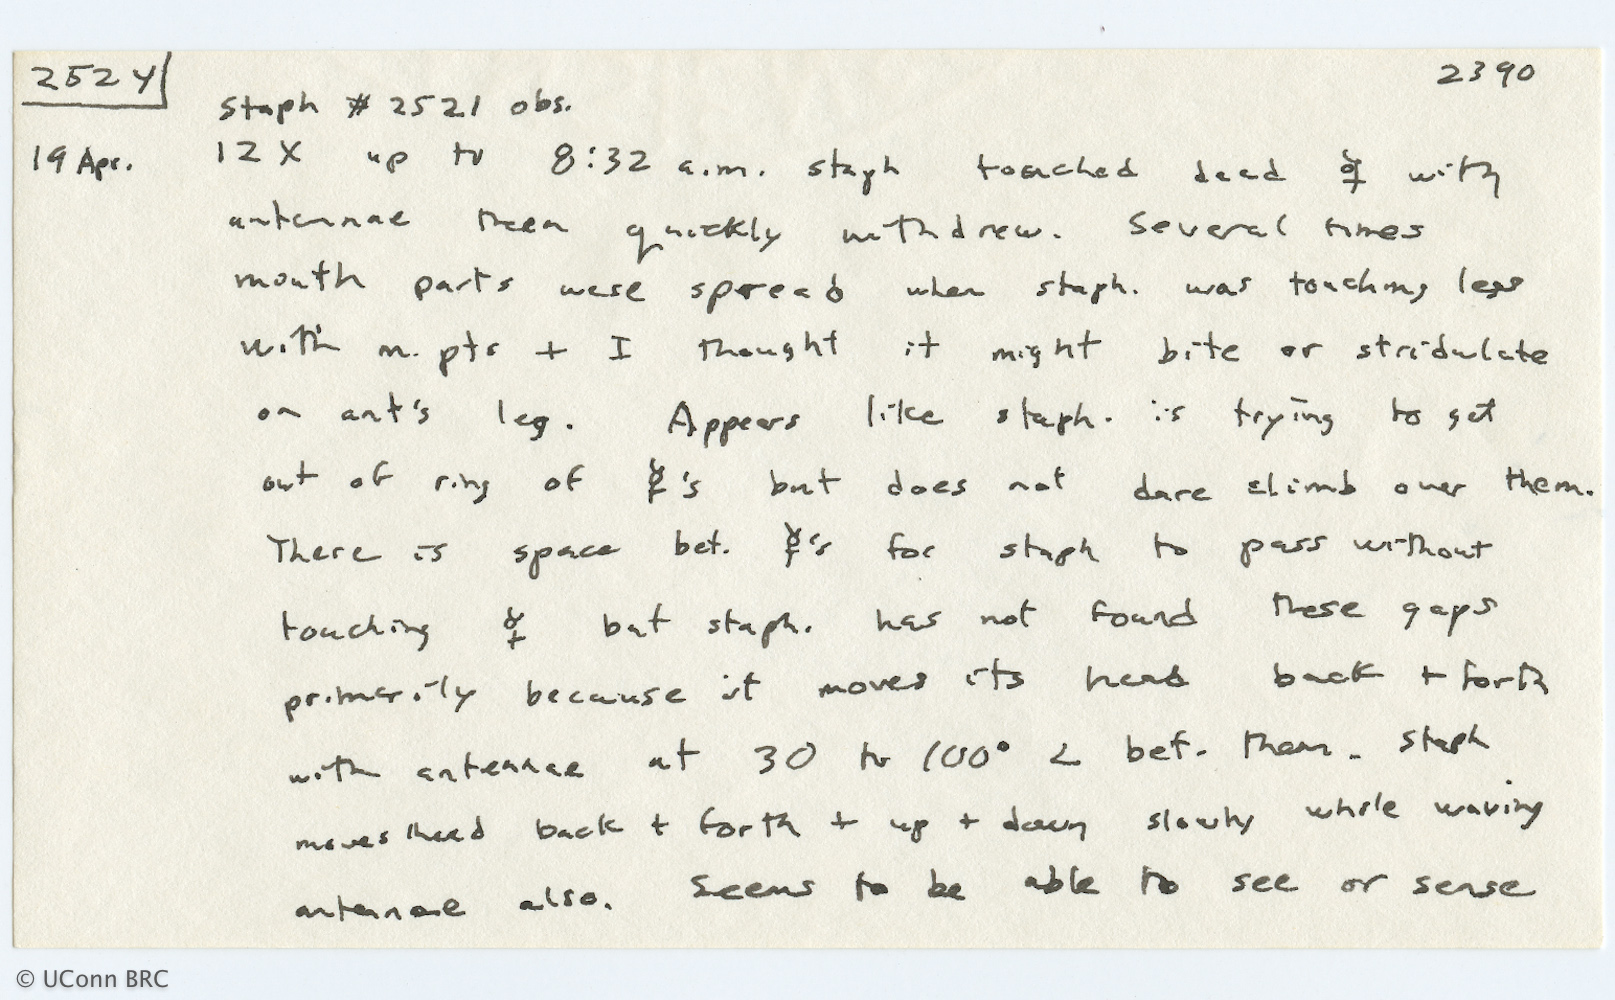 2524
2390
Staph # 2521 obs.
19 Apr.
12 X up to 8:32 a.m. staph touched dead ☿ with
antennae then quickly withdrew. Several times
mouth parts were spread when staph. was touching legs
with m. pts + I thought it might bite or stridulate
on ant's leg. Appears like staph. is trying to get
out of ring of ☿'s but does not dare climb over them.
There is space bet. ☿'s for staph to pass without
touching ☿ but staph. has not found these gaps
primarily because it moves its head back + forth
with antennae at 30 to 100° ∠ bet. them. Staph
moves head back + forth + up + down slowly while waving
antennae also. Seems to be able to see or sense
© UConn BRC